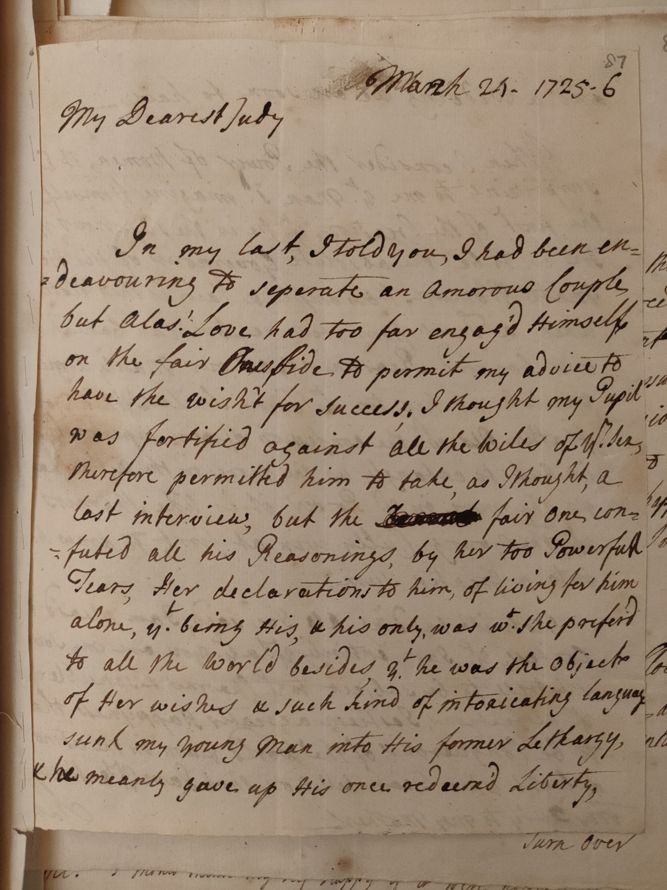 87
March 24. 1725-6
My Dearest Judy
In my last, I told you, I had been en=
=deavouring to seperate an Amorous Couple,
but Alas! Love had too far engag'd Himself
on the fair Ones side to permit my advice to
have the wish't for success, I thought my Pupil
was fortified against all the Wiles of yr. Sex,
therefore permitted him to take, as I thought, a
last interview, but the fair one con=
=futed all his Reasonings, by her too Powerfull
Tears, Her declarations to him, of living for him
alone, yt. being His, & his only, was wt. she prefer'd
to all the World besides, yt. he was the Object
of Her wishes & such kind of intoxicating languag
sunk my young Man into His former Lethargy,
& he meanly gave up His once redeem'd Liberty,
Turn Over